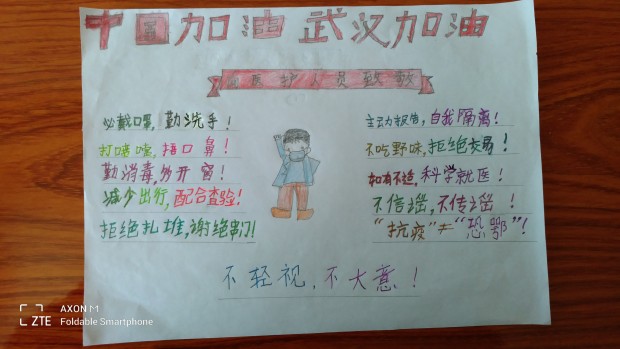 中国加油 武汉加油
向医护人员致敬
必戴口罩,勤洗手!
打喷嚏,捂口鼻!
勤消毒,多开窗!
减少出行,配合查验!
拒绝扎堆,谢绝串门!
主动报告,自我隔离!
不吃野味,拒绝交易!
如有不适,科学就医!
不信谣,不传谣!
“抗疫”≠“恐鄂”!
不轻视,不大意!
AXON M
ZTE Foldable Smartphone